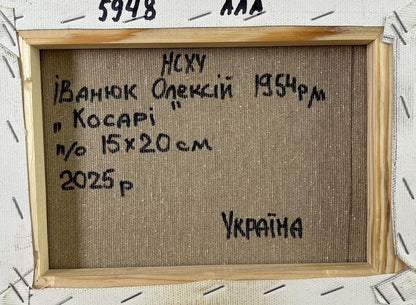 5948 ААА
НСХУ
іВанюк Олексій 1954р/м
„Косарі"
п/о 15x20см
2025р
Україна